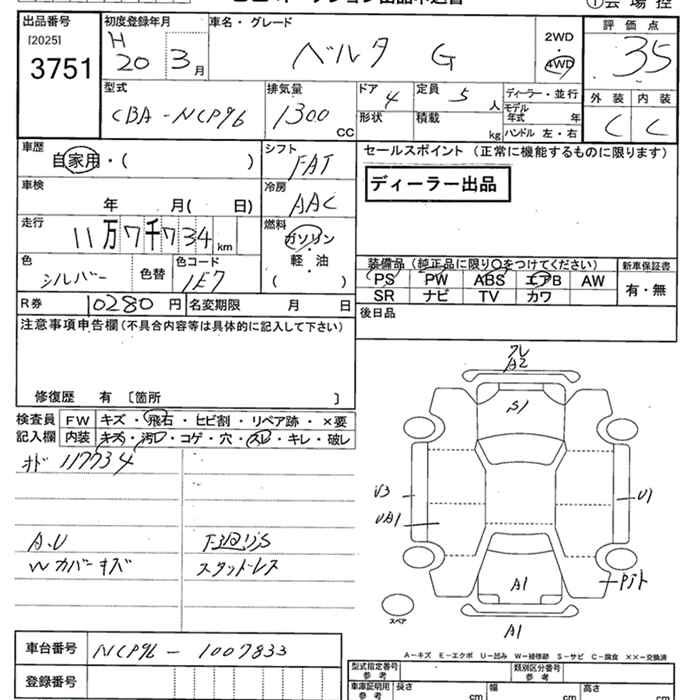 出品番号
[2025]
3751
初度登録年月
H 20 3月
車名・グレード
ベルタ G
2WD
・
4WD
評価点
35
型式
CBA-NCP96
排気量
1300 CC
ドア 4
形状
定員 5 人
積載 kg
ディーラー・並行
モデル年式 年
ハンドル 左・右
外装 内装
C C
車歴
自家用・( )
シフト
FAT
セールスポイント (正常に機能するものに限ります)
ディーラー出品
車検
年 月( 日)
冷房
AAC
走行
11万7千734km
燃料
ガソリン
・
軽・油
( )
色
シルバー
色替
色コード
1E7
装備品 (純正品に限り○をつけてください)
新車保証書
PS PW ABS エアB AW
SR ナビ TV カワ
有・無
R券 10280円 名変期限 月 日
後日品
注意事項申告欄 (不具合内容等は具体的に記入して下さい)
修復歴 有 〔箇所 〕
検査員記入欄
FW キズ・飛石・ヒビ割・リペア跡・×要
内装 キズ・汚レ・コゲ・穴・スレ・キレ・破レ
オド 117734
A.U
Wカバーキズ
スタッドレス
クレ
A2
S1
U3
UA1
U1
A1
A1
スペア
A－キズ E－エクボ U－凹み W－補修跡 S－サビ C－腐食 ××－交換済
車台番号 NCP96-1007833
登録番号
型式指定番号
参考
類別区分番号
参考
車庫証明用
参考
長さ cm
幅 cm
高さ cm